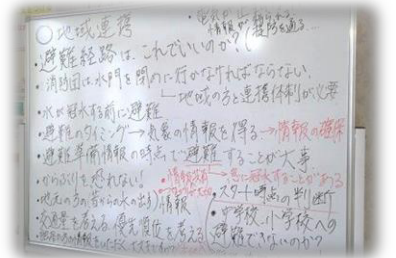 〇地域連携
情報が
・避難経路はこれでいいのか?
・消防団は水門を閉めに行かなければならない。
地域の方と連携体制が必要
・水が冠水する前に避難
・避難のタイミング→気象の情報を得る→情報の確保
・避難準備情報の時点で避難することが大事。
・からぶりを恐れない!
・急に冠水することがある
・地元の方の昔からの水の出る情報
・スタート時点の判断
・交通量を考える 優先順位も考える
・中学校、小学校への
避難できないのか?